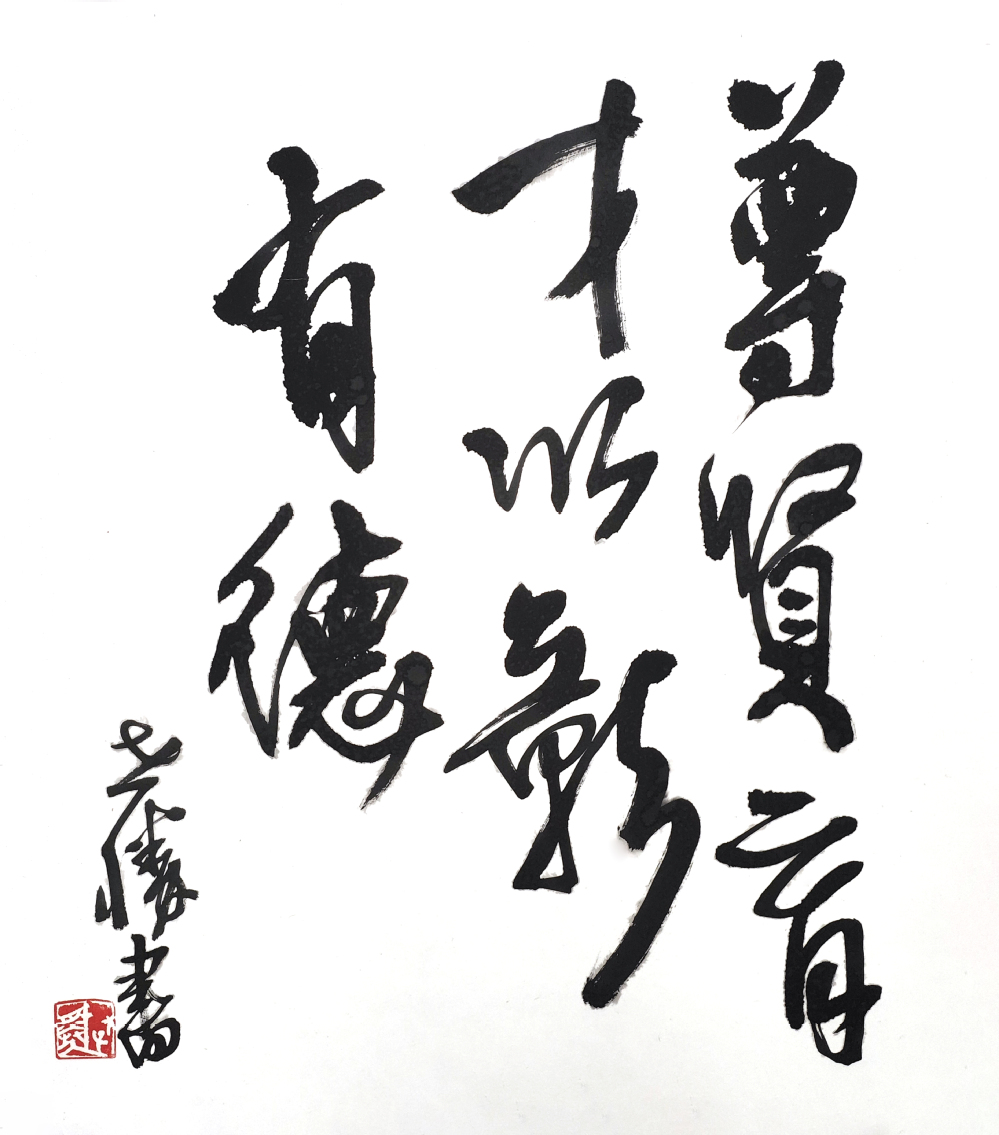 尊賢育
才以彰
有德
書